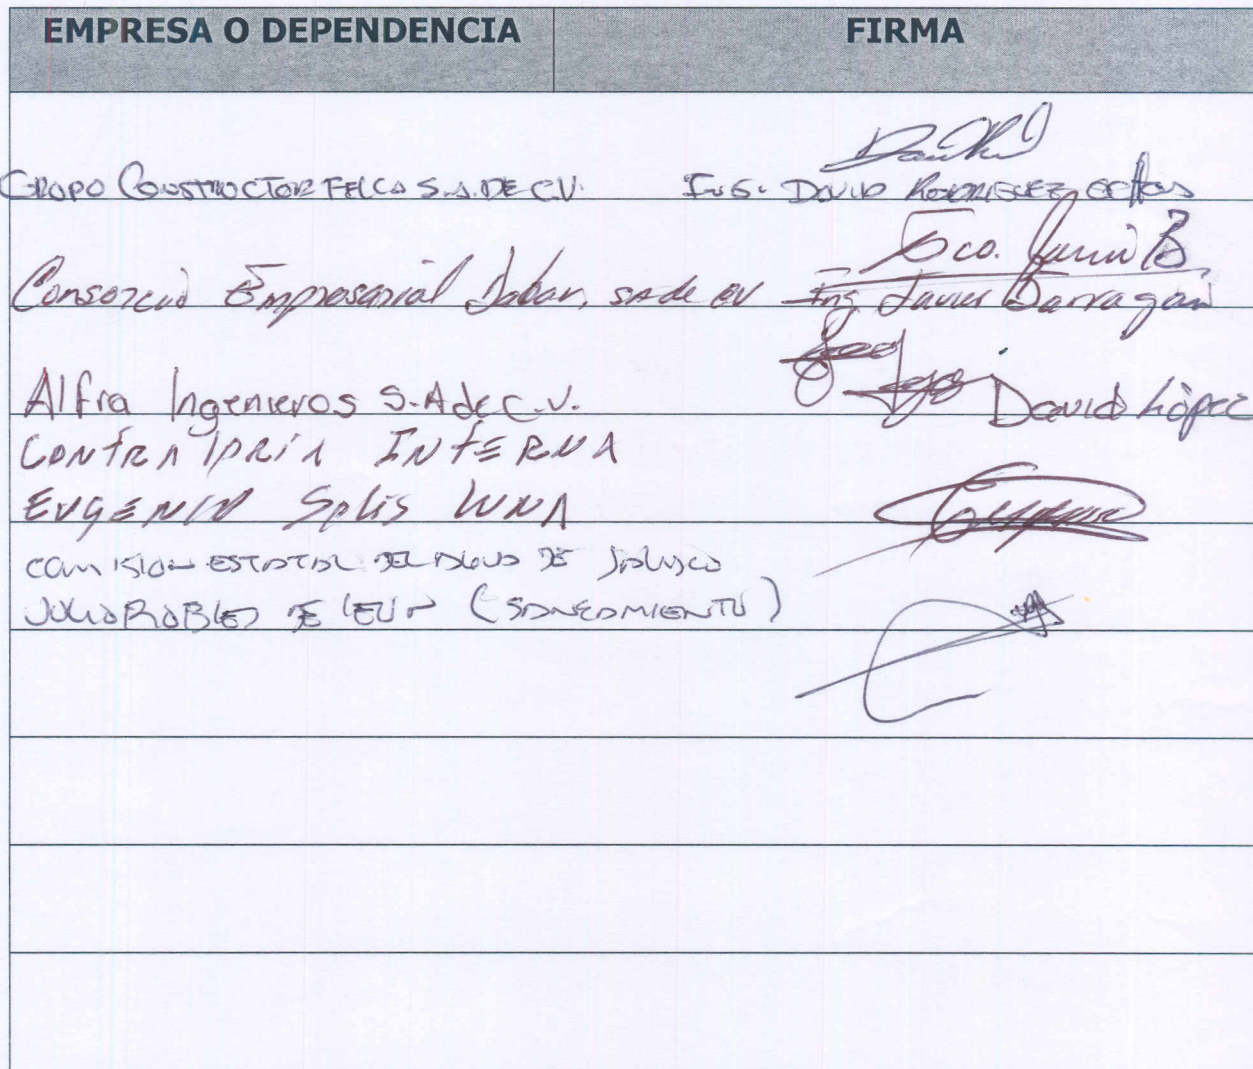 EMPRESA O DEPENDENCIA FIRMA
GRUPO CONSTRUCTOR FELCA S.A. DE C.V. ING. DAVID RODRIGUEZ
Consorcio Empresarial Jabar, sa de cv Fco. Javier B.
Ing Javier Barragan
Alfra Ingenieros S.A de C.V. David López
CONTRALORÍA INTERNA
EUGENIO SOLIS LUNA
COMISION ESTATAL DEL AGUA DE JALISCO
JULIO ROBLES DE LEON (SANEAMIENTO)